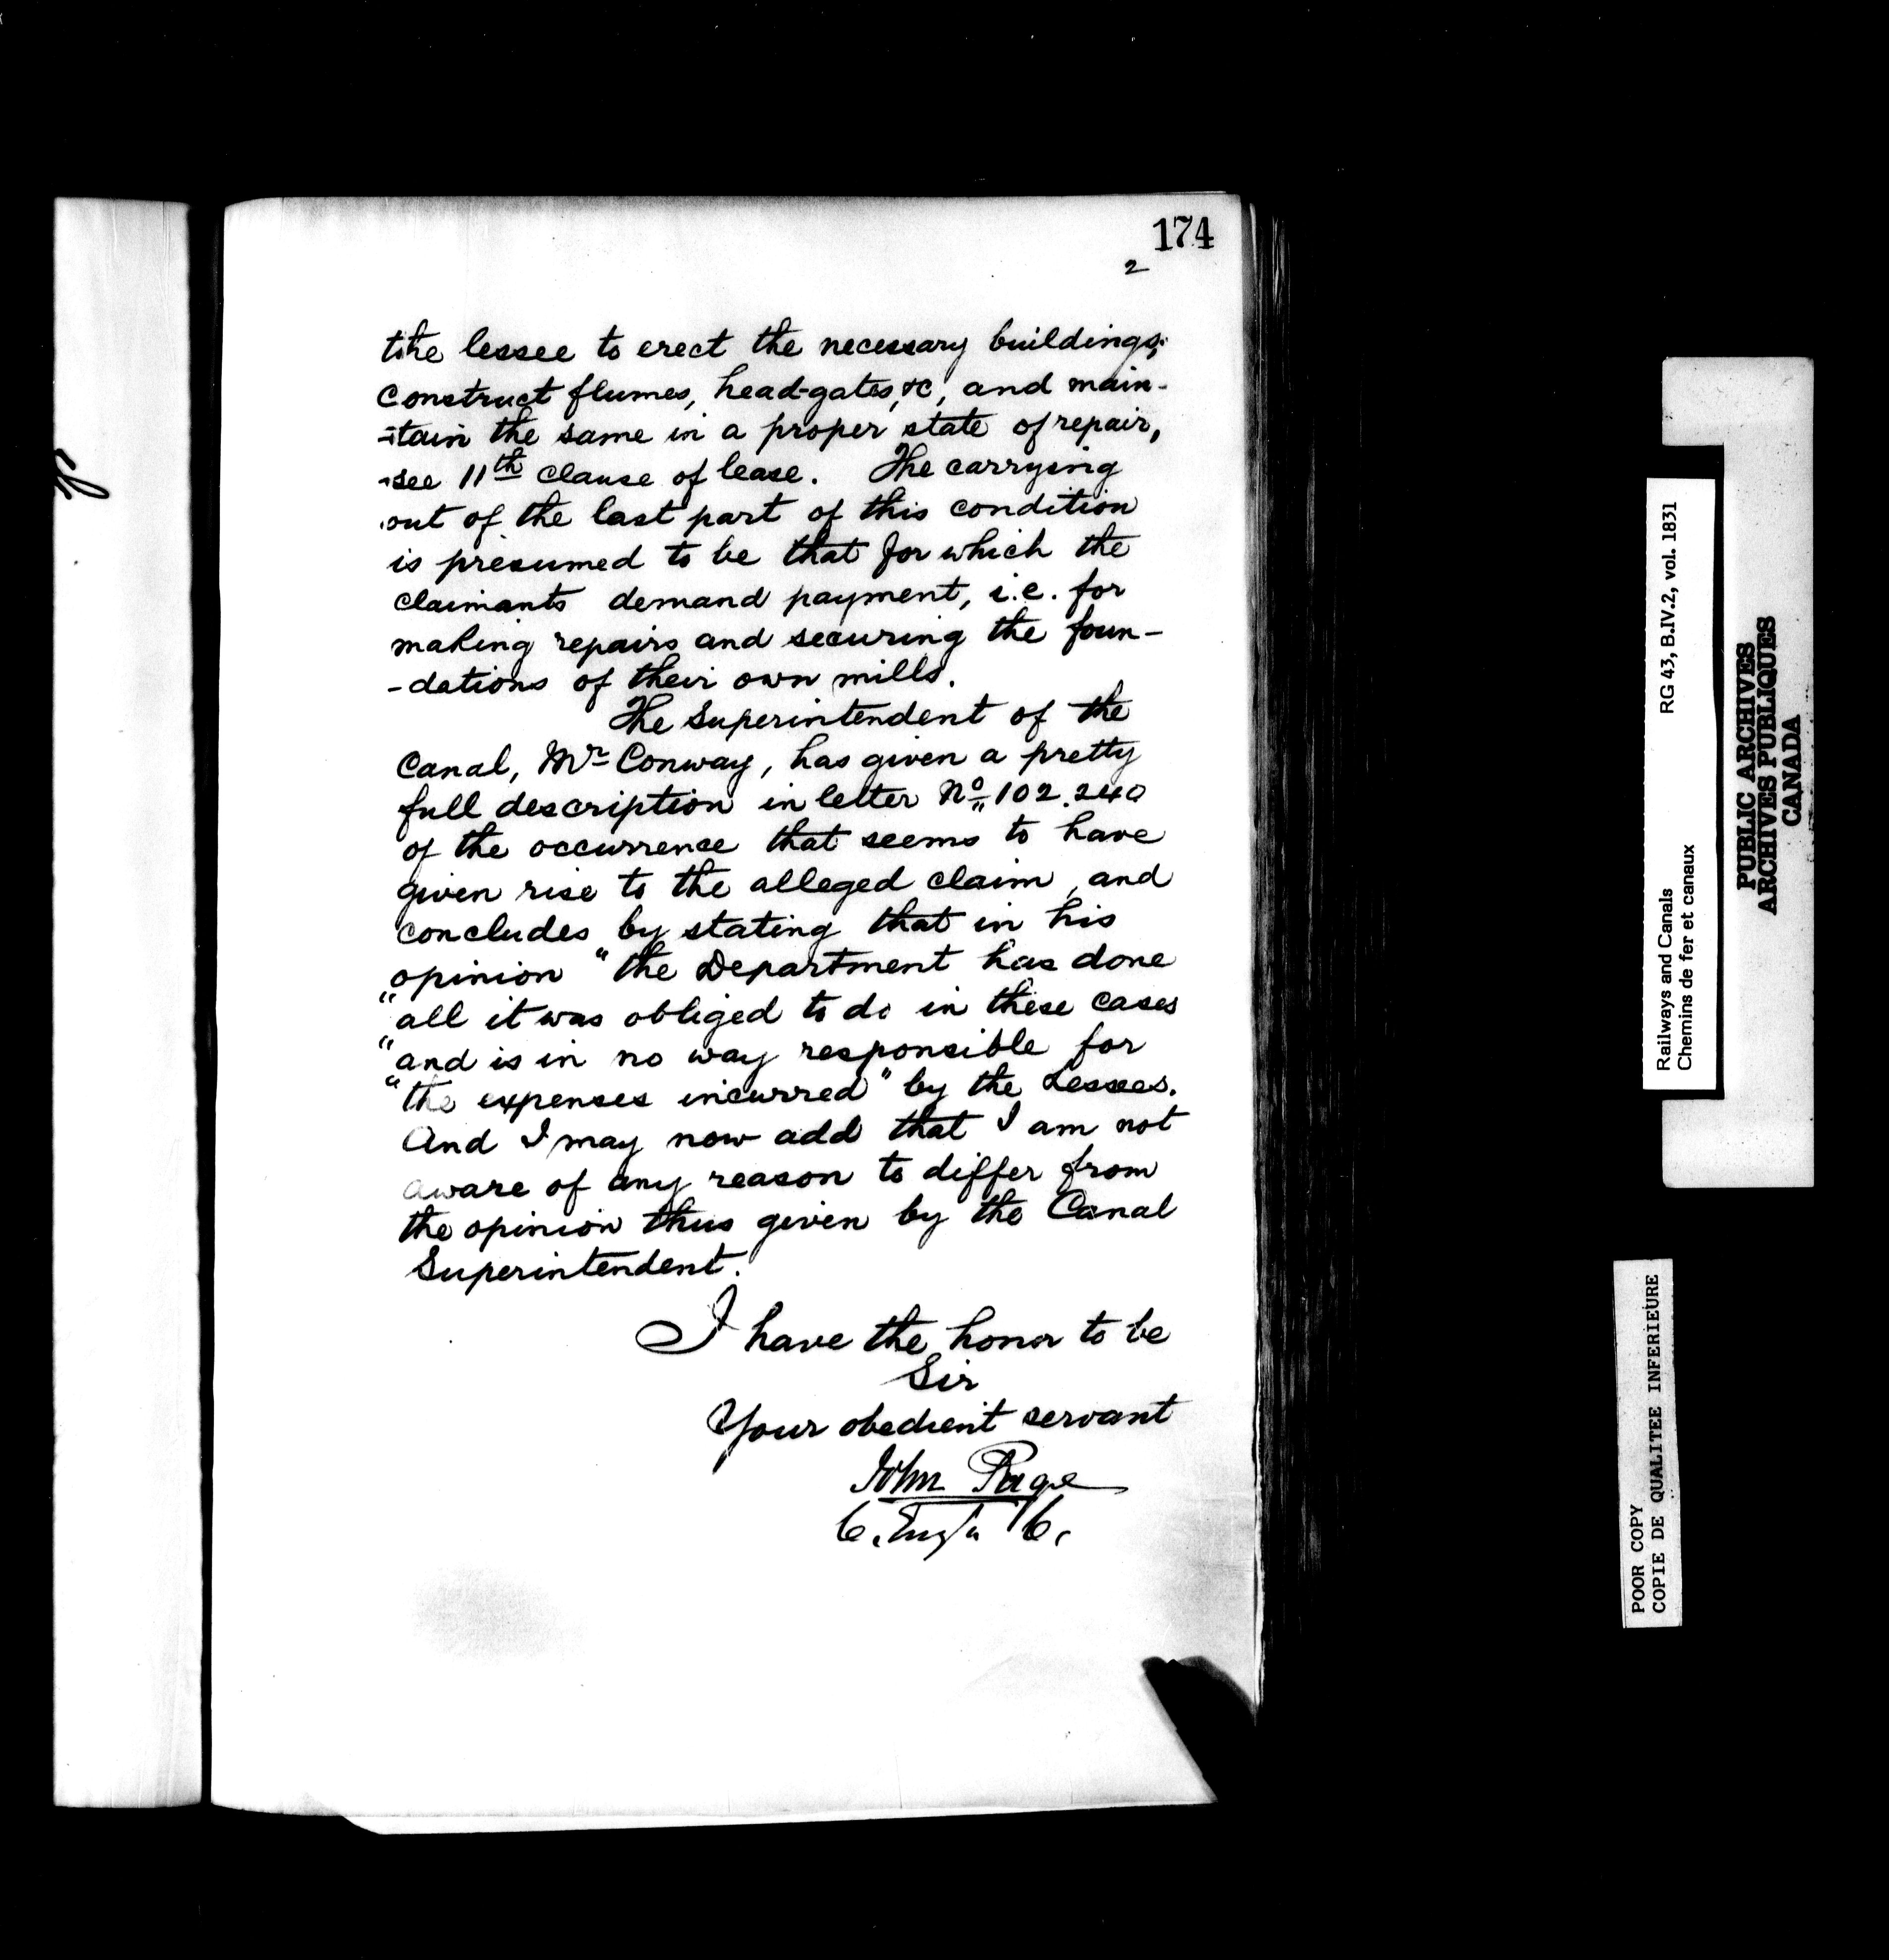 174
2
the lessee to erect the necessary buildings,
construct flumes, head-gates, &c, and main-
-tain the same in a proper state of repair,
see 11th clause of lease. The carrying
out of the last part of this condition
is presumed to be that for which the
claimants demand payment, i.e. for
making repairs and securing the foun-
-dations of their own mills.
The Superintendent of the
Canal, Mr Conway, has given a pretty
full description in letter No 102.240
of the occurrence that seems to have
given rise to the alleged claim, and
concludes by stating that in his
opinion "the Department has done
"all it was obliged to do in these cases
"and is in no way responsible for
"the expenses incurred" by the Lessees.
And I may now add that I am not
aware of any reason to differ from
the opinion thus given by the Canal
Superintendent.
I have the honor to be
Sir
Your obedient servant
John Page
C. Engr C.
Railways and Canals RG 43, B.IV.2, vol. 1831
Chemins de fer et canaux
PUBLIC ARCHIVES
ARCHIVES PUBLIQUES
CANADA
POOR COPY
COPIE DE QUALITEE INFERIEURE